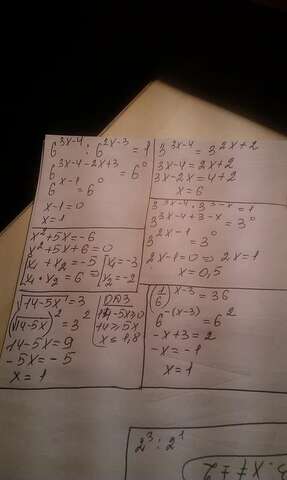 6^{3x-4} : 6^{2x-3} = 1
6^{3x-4-2x+3} = 6^0
6^{x-1} = 6^0
x-1=0
x=1
x^2+5x=-6
x^2+5x+6=0
x_1 + x_2 = -5
x_1 · x_2 = 6
x_1=-3
x_2=-2
√14-5x = 3
(√14-5x)^2 = 3^2
14-5x=9
-5x=-5
x=1
ОДЗ
14-5x≥0
14≥5x
3^{3x-4} = 3^{2x+2}
3x-4=2x+2
3x-2x=4+2
x=6
3^{3x-4} · 3^{3-x} = 1
3^{3x-4+3-x} = 3^0
3^{2x-1} = 3^0
2x-1=0 ⇒ 2x=1
x=0,5
(1/6)^{x-3} = 36
6^{-(x-3)} = 6^2
-x+3=2
-x=-1
x=1
2^3 : 2^1